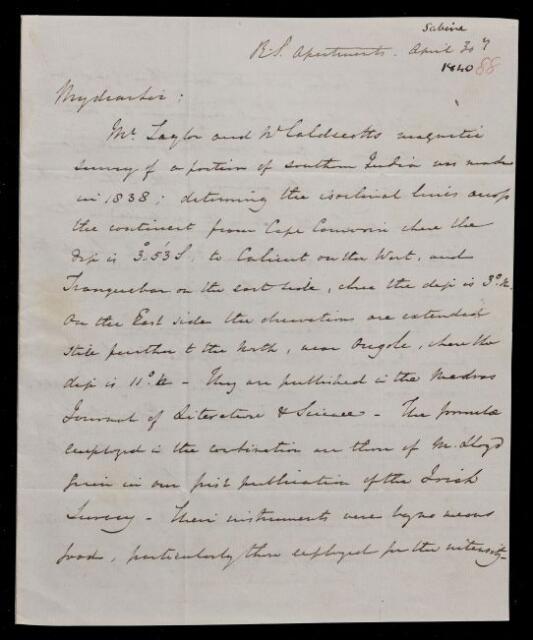 Sabine
R.S. Apartments. April 30th
1840 88
My dear Sir;
Mr. Taylor and Mr Caldecott's magnetic
survey of a portion of southern India was made
in 1838; determining the isoclinal lines across
the continent from Cape Comorin where the
dip is 3°.53' S, to Calicut on the West, and
Tranquebar on the east side, where the dip is 3° N.
On the East side the observations are extended
still further to the North, near Ongole, where the
dip is 11° N - They are published in the Madras
Journal of Literature & Science - The formulæ
employed in the combination are those of Mr. Lloyd
given in our first publication of the Irish
Survey - Their instruments were by no means
good, particularly those employed for the intensity-